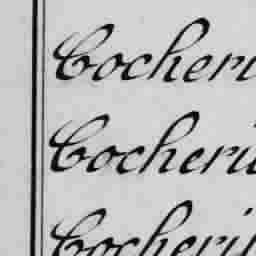 Cocheri
Cocheri
Cocheri